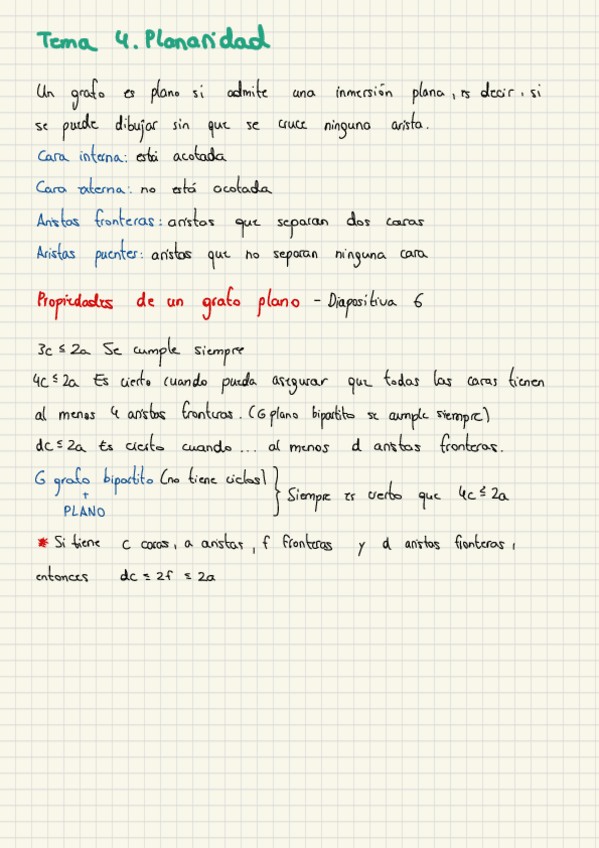 Tema 4. Planaridad
Un grafo es plano si admite una inmersión plana, es decir, si
se puede dibujar sin que se cruce ninguna arista.
Cara interna: está acotada
Cara externa: no está acotada
Aristas fronteras: aristas que separan dos caras
Aristas puentes: aristas que no separan ninguna cara
Propiedades de un grafo plano - Diapositiva 6
3c ≤ 2a Se cumple siempre
4c ≤ 2a Es cierto cuando pueda asegurar que todas las caras tienen
al menos 4 aristas fronteras. (G plano bipartito se cumple siempre)
dc ≤ 2a Es cierto cuando ... al menos d aristas fronteras.
G grafo bipartito (no tiene ciclos) } Siempre es cierto que 4c ≤ 2a
+
PLANO
* Si tiene c caras, a aristas, f fronteras y d aristas fronteras,
entonces dc ≤ 2f ≤ 2a